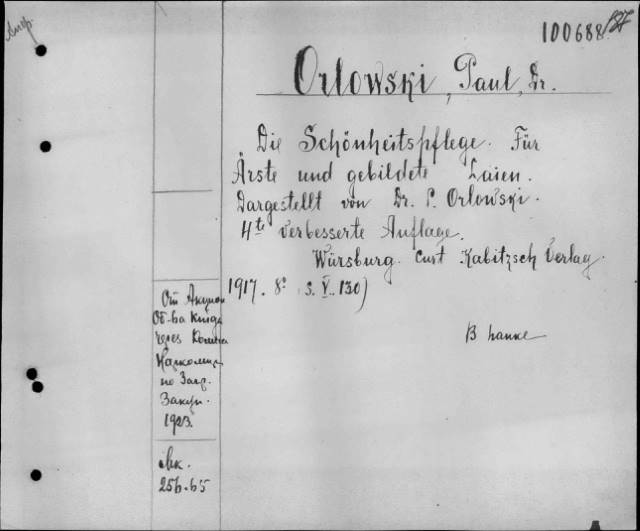 100688
Orlowski, Paul, Dr.
Die Schönheitspflege. Für
Ärste und gebildete Laien.
Dargestellt von Dr. P. Orlowski.
4te verbesserte Auflage.
Würsburg. Curt Kabitzsch Verlag.
1917. 8° (S. V. 130)
В папке
От Акцион
Об-ва Книга
через
по Загр.
Закуп.
1923.
256.65